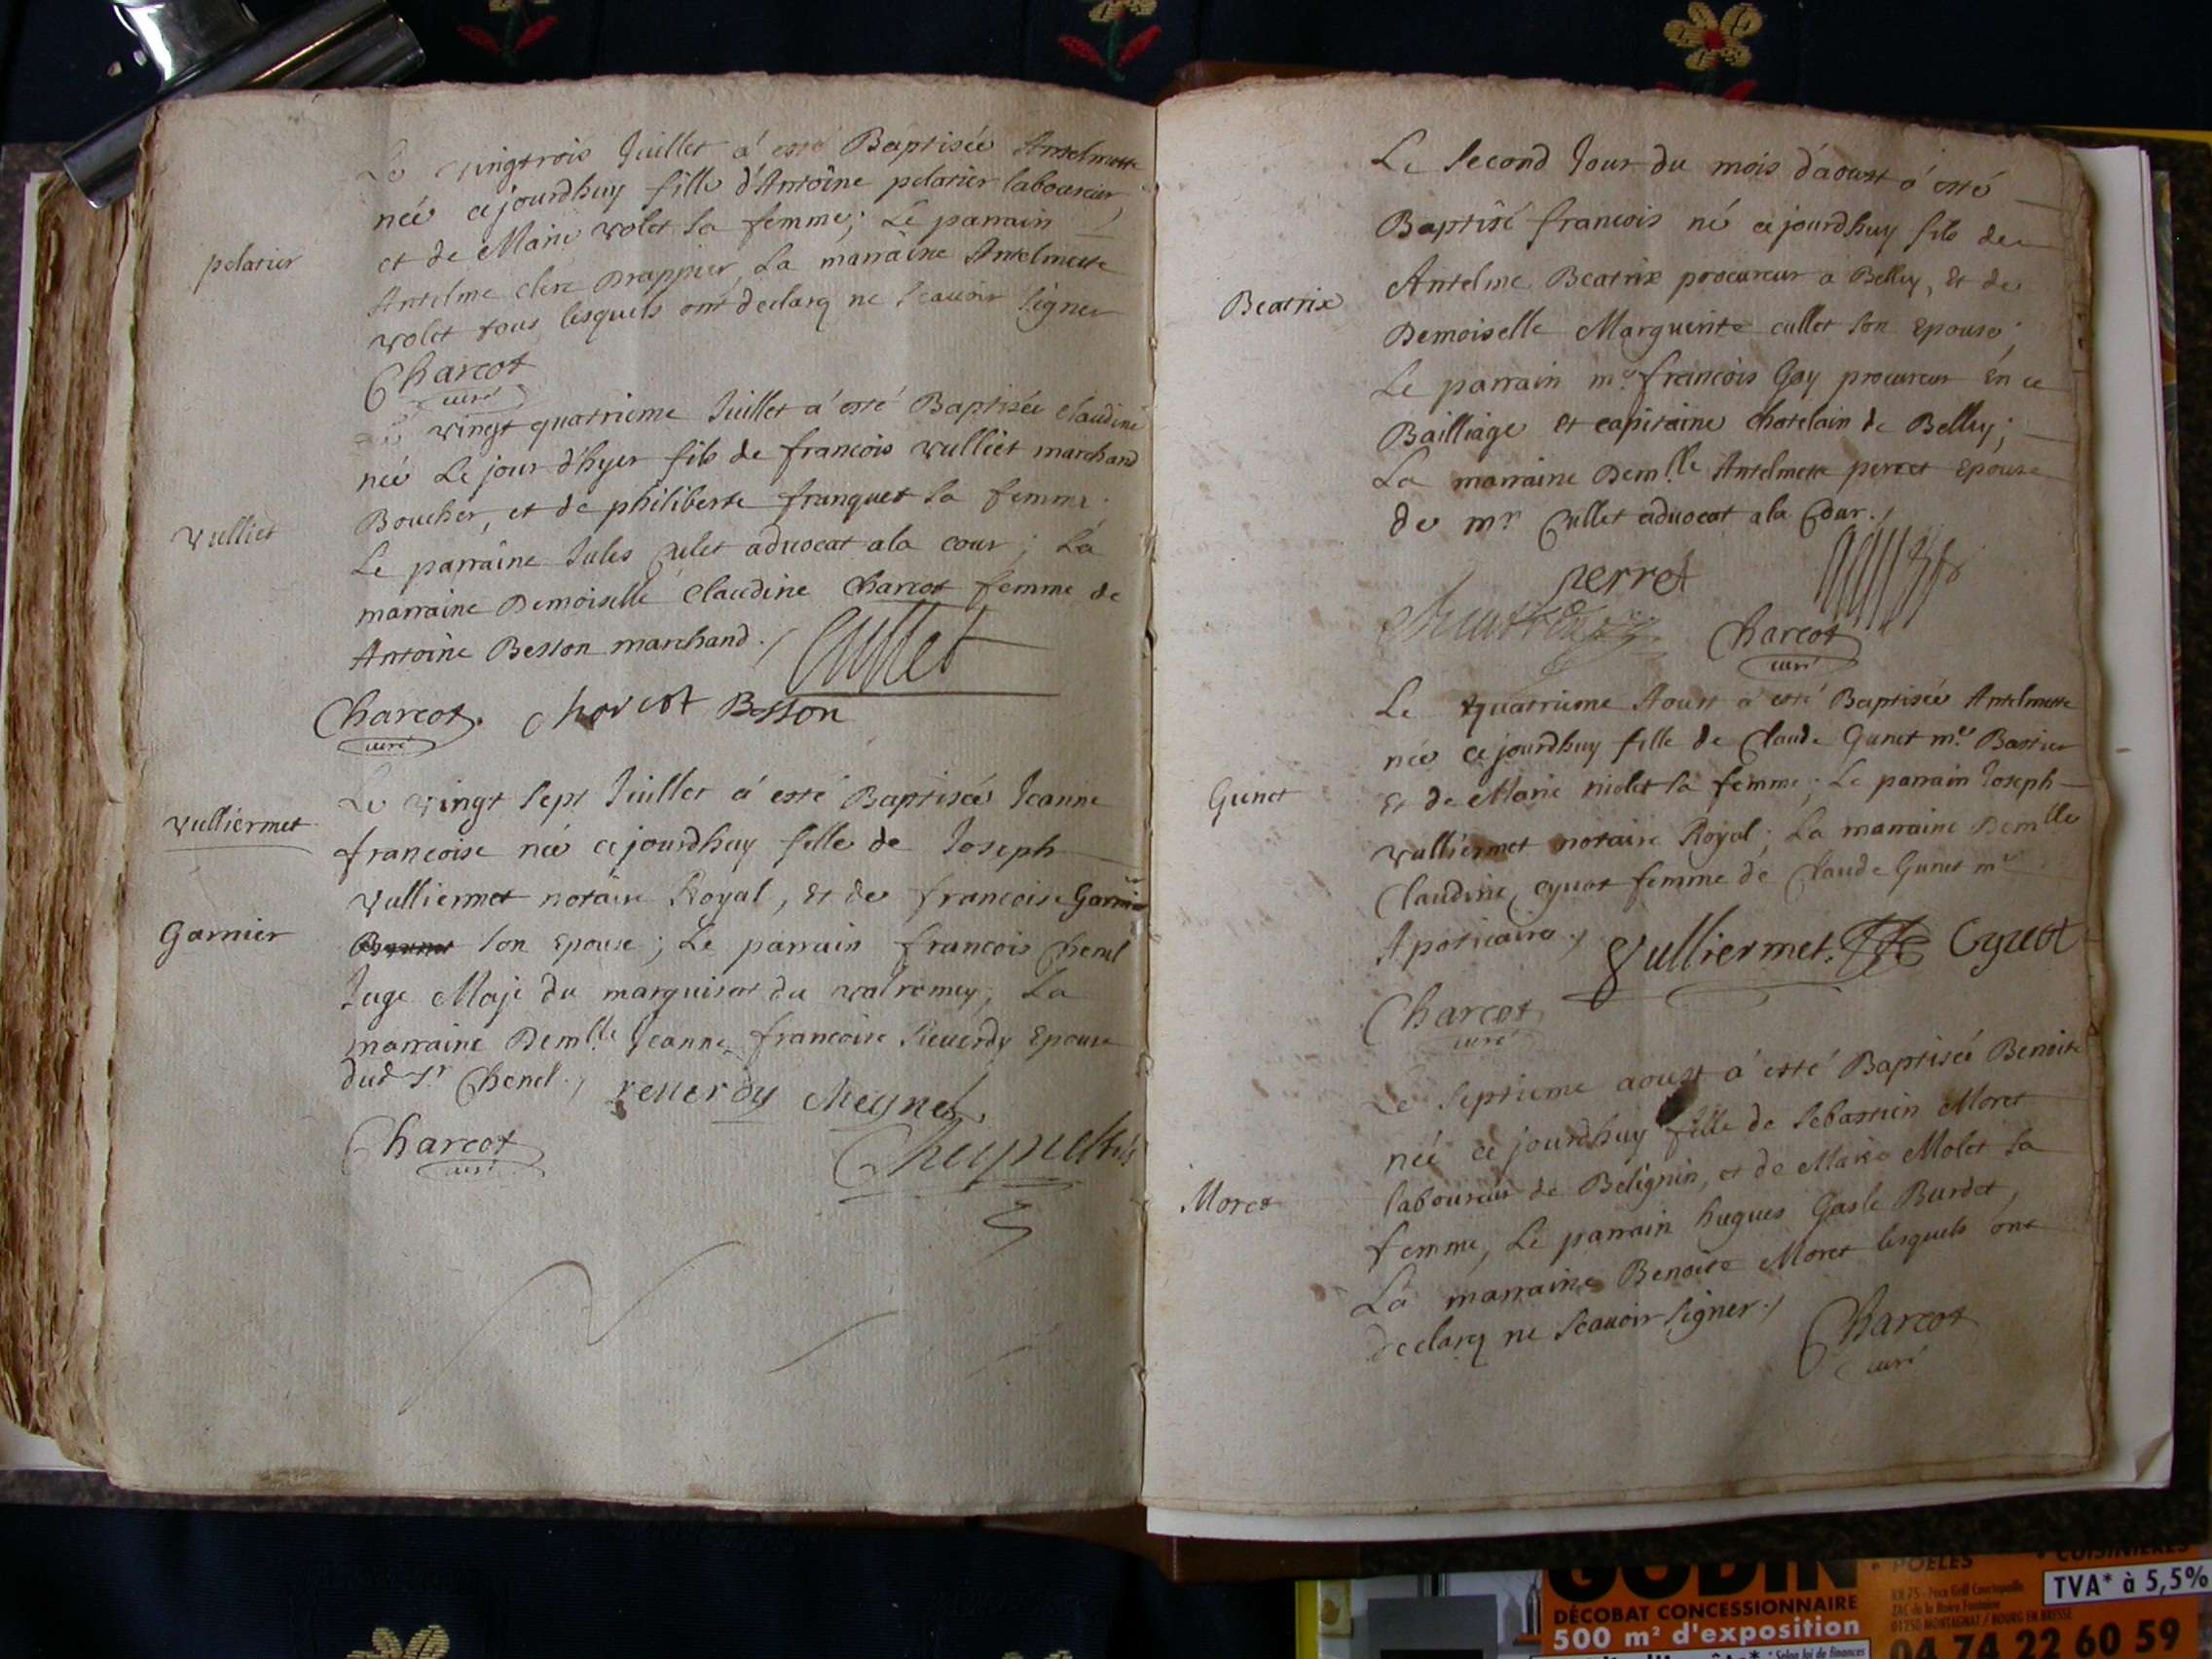 Le vingtrois Juillet a esté Baptisée Antelmette
née cejourdhuy fille d'Antoine pelatier laboureur
et de Marie volet sa femme; Le parrain
pelatier
Antelme clerc Drappier, La marraine Antelmette
volet tous lesquels ont declarq ne scauoir signer
Charcot
curé
vingt quatrieme Juillet a esté Baptisée claudine
née Le jour d'hyer fils de francois vulliet marchand
Boucher, et de philiberte franquet sa femme.
vulliet
Le parraine Jules Culet aduocat ala cour; La
marraine Demoiselle Claudine Charcot femme de
Antoine Besson marchand./ Cullet
Charcot. charcot Besson
curé
Le vingt sept Juillet a esté Baptisée Jeanne
vulliermet
francoise née cejourdhuy fille de Joseph
vulliermet notaire Royal, et de francoise Garnier
Garnier
son epouse; Le parrain francois Chenel
Juge Maje du marquisat du valromey; La
marraine Demlle Jeanne francoise Reuerdy Epouse
dud sr Chenel./ reuerdy cheynel
Charcot
curé
Le second Jour du mois d'aoust a esté
Baptisé francois né cejourdhuy fils de
Antelme Beatrix procureur a Belley, et de
Beatrix
Demoiselle Marguerite cullet son epouse;
Le parrain mre francois Gay procureur en ce
Bailliage et capitaine chatelain de Belley;
La marraine Demlle Antelmette perret epouse
de mr Cullet aduocat ala Cour./
perret
Charcot
curé
Le quatrieme Aoust a esté Baptisée Antelmette
née cejourdhuy fille de Claude Gunet mre Bastier
Gunet
Et de Marie niolet sa femme; Le parrain Joseph
vulliermet notaire Royal; La marraine Demlle
Claudine cyuot femme de Claude Gunet mre
Apoticaire./ Vulliermet. Cyuot
Charcot
curé
Le septieme aoust a esté Baptisée Benoite
née ce jourdhuy fille de Sebastien Moret
laboureur de Belignin, et de Marie Molet sa
Moret
femme, Le parrain hugues Gasle Burdet,
La marraine Benoite Moret lesquels ont
declarq ne scauoir signer./
Charcot
curé
GODIN
DÉCOBAT CONCESSIONNAIRE
500 m² d'exposition
POÊLES
CUISINIÈRES
TVA* à 5,5%
01250 MONTAGNAT / BOURG EN BRESSE
04 74 22 60 59
* Selon loi de finances